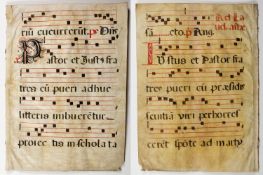 riū cucurrerūt. ps Dñs
Pastor et Iustus fra
tres cū pueri adhuc
litteris imbuerētur.
proiectis in schola ta
eto. p Aug.
IVstus et Pastor fra
tres cū pueri cū præside
sentia viri perhorret
ceret spōte ad marty